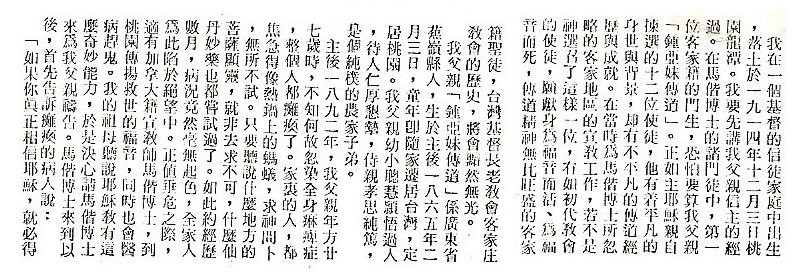 我在一個基督的信徒家庭中出生
，落土於一九一四年十二月三日桃
園龍潭。我要先講我父親信主的經
過。在馬偕博士的諸門徒中，第一
位客家籍的門生，恐怕要算我父親
「鍾亞妹傳道」。正如主耶穌親自
揀選的十二位使徒，他有著平凡的
身世與背景，却有不平凡的傳道經
歷與成就。在當時爲馬偕博士所忽
略的客家地區的宣教工作，若不是
神選召了這樣一位，有如初代教會
的使徒，願獻身爲福音而活、爲福
音而死，傳道精神無比旺盛的客家
籍聖徒，台灣基督長老教會客家庄
教會的歷史，將會黯然無光。
我父親「鍾亞妹傳道」係廣東省
蕉嶺縣人，生於主後一八六五年二
月三日，童年即隨家遷居台灣，定
居桃園。我父親幼小聰慧穎悟過人
，待人仁厚懇摯，侍親孝思純篤，
是個純樸的農家子弟。
主後一八九二年，我父親年方廿
七歲時，不知何故忽染全身痳痺症
，整個人都癱瘓了。家裏的人，都
焦急得像熱鍋上的螞蟻，求神問卜
，無所不試。只要聽說什麼地方的
菩薩顯靈，就非去求不可，什麼仙
丹妙藥也都嘗試過了。如此約經歷
數月，病況竟然毫無起色，全家人
爲此陷於絕望中。正值垂危之際，
適有加拿大籍宣教師馬偕博士，到
桃園傳揚救世的福音，同時也會醫
病趕鬼。我的祖母聽說耶穌教有這
麼奇妙能力，於是決心請馬偕博士
來爲我父親禱告。馬偕博士來到以
後，首先告訴癱瘓的病人說：
「如果你眞正相信耶穌，就必得